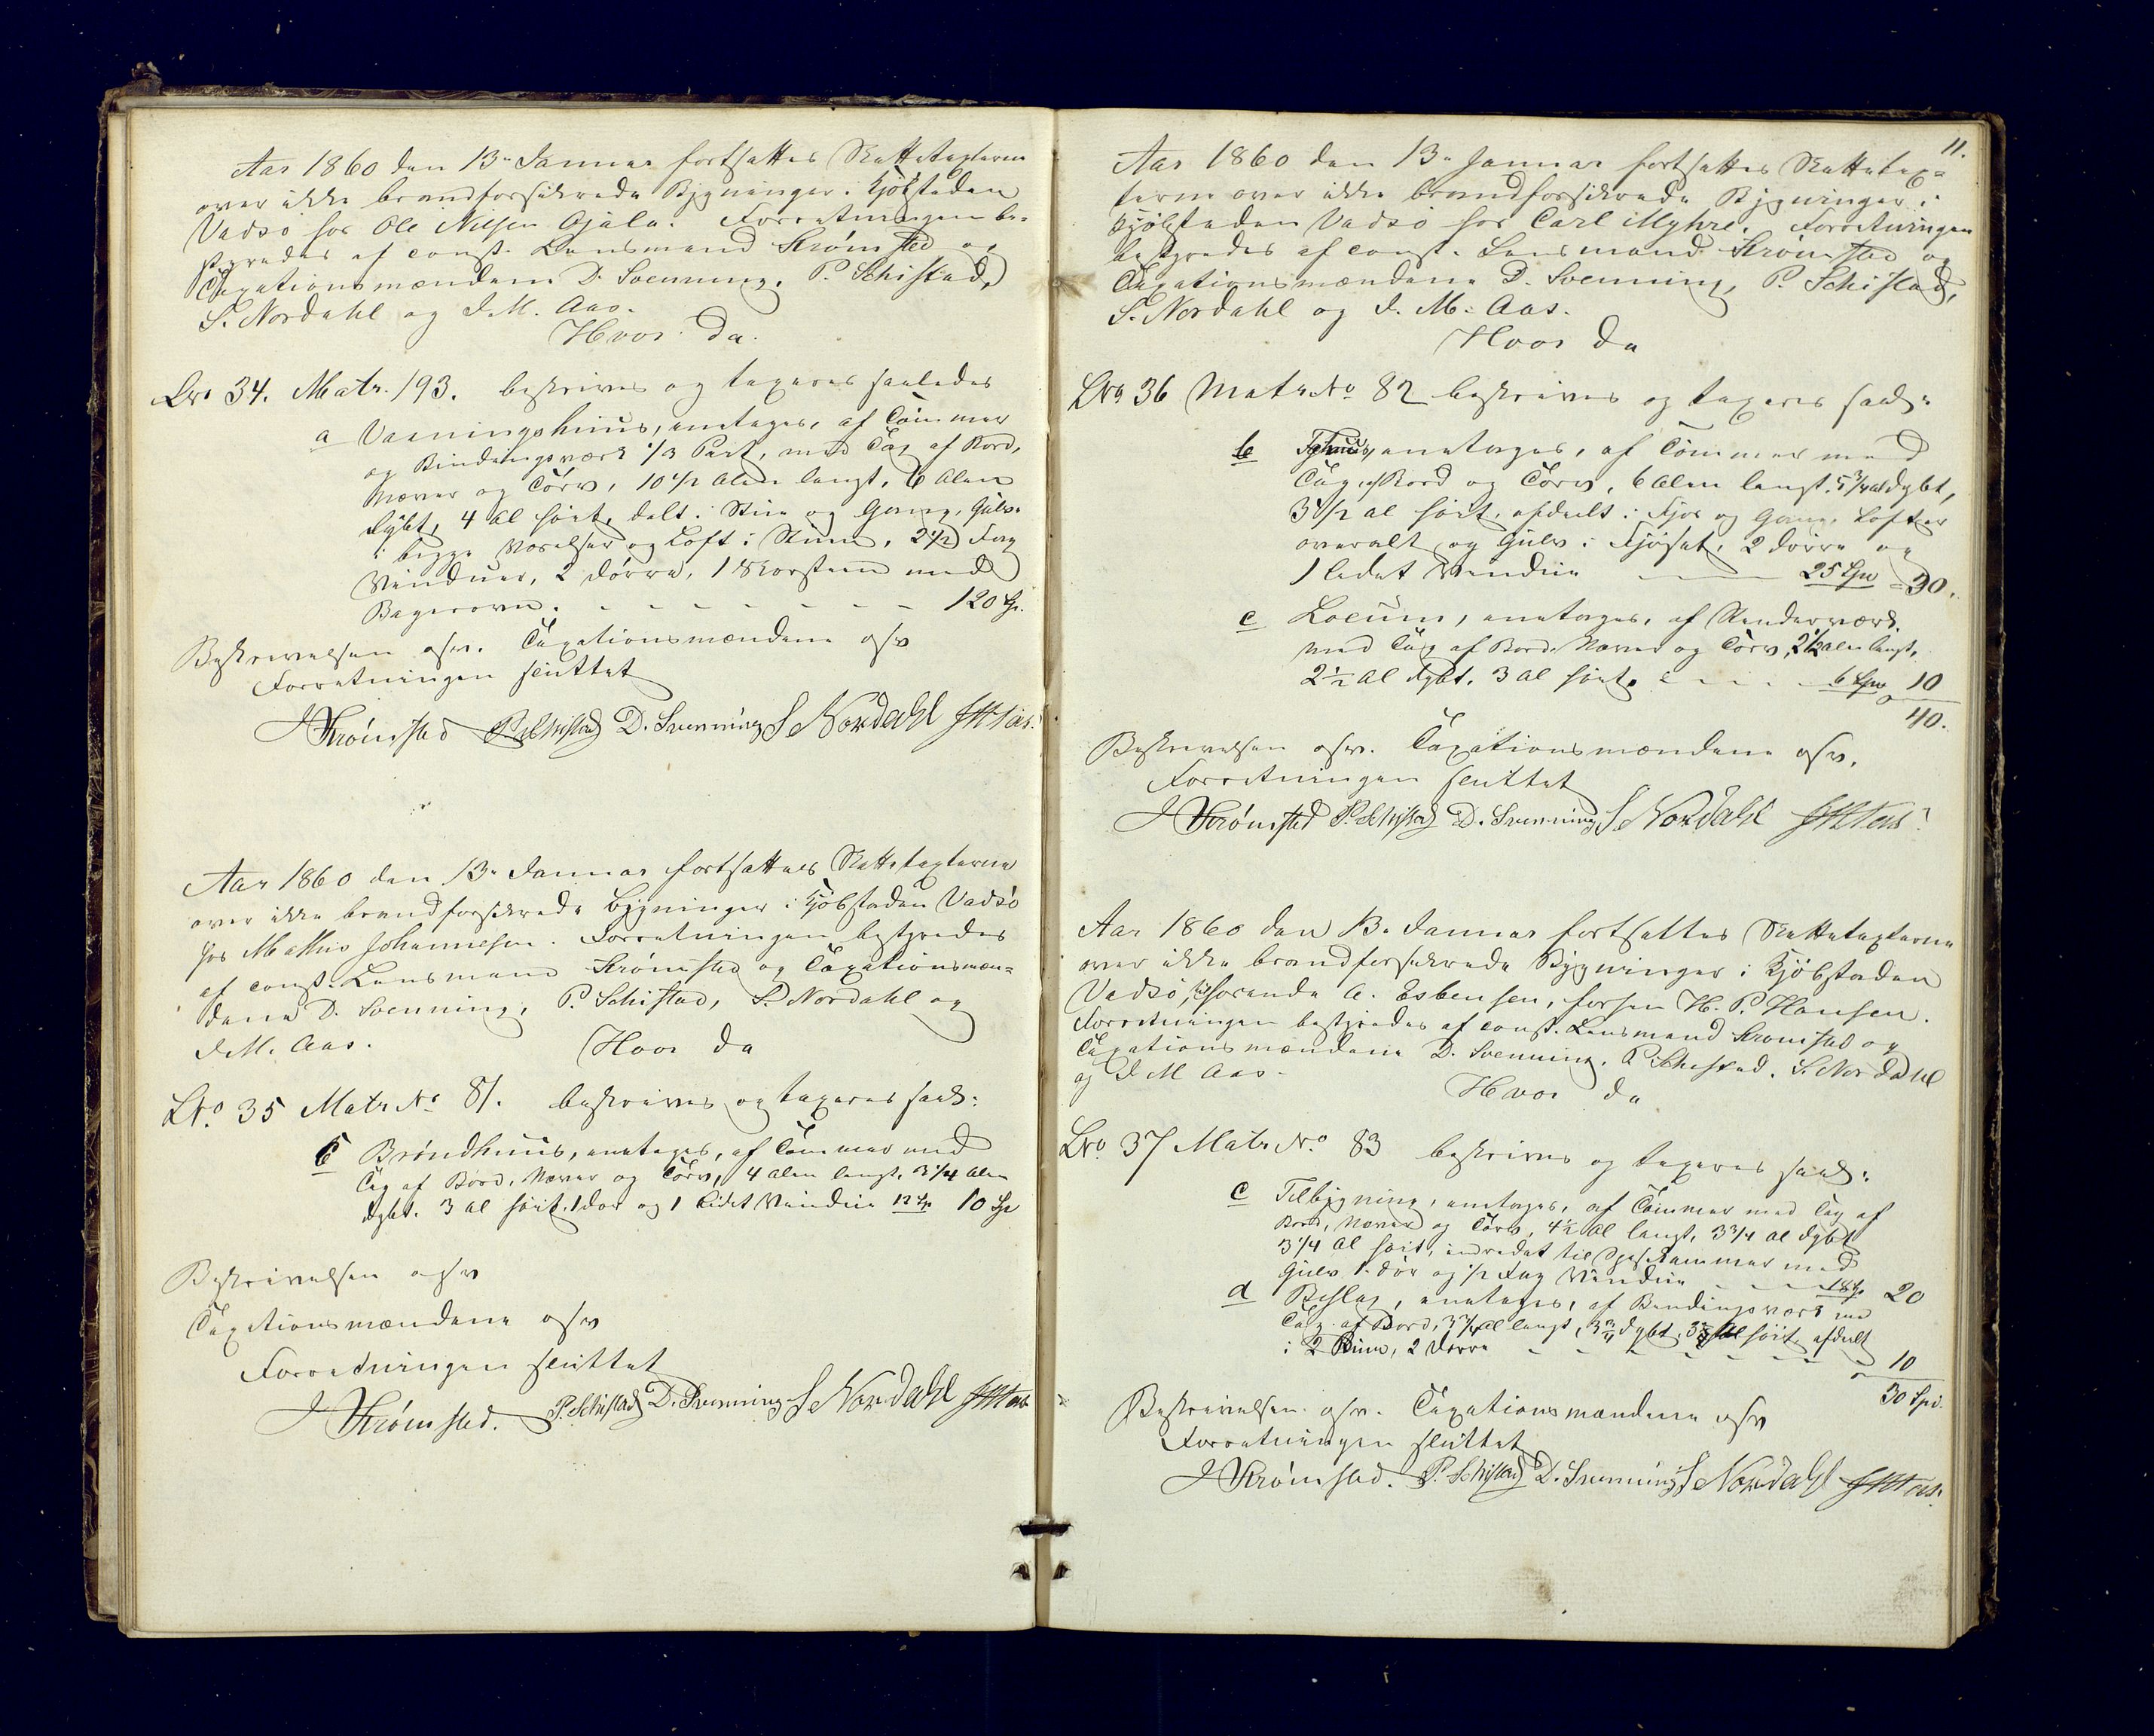 Aar 1860 den 13de Januar fortsattes Skattetaxterne
over ikke brandforsikrede Bygninger i Kjöbstaden
Vadsö hos Ole Nilsen Ojala. Forretningen be-
styredes af const. Lensmand Strömsted og
Taxationsmændene D. Svenning, P. Schistad,
S. Nordahl og J. M. Aas.
Hvor da
LNo 34. Matr. 193. beskrives og taxeres saaledes
a Vaaningshuus, eenetages, af Tömmer
og Bindingsværk 1/3 Part, med Tag af Bord,
Næver og Törv, 10 1/2 Alen langt, 6 Alen
dybt, 4 Al höit, delt i Stue og Gang, Gulv
i begge Værelser og Loft i Stuen, 2 1/2 Fag
Vinduer, 2 Dörre, 1 Skorsteen med
Bagerovn. 120 Sp.
Beskrivelsen osv. Taxationsmændene osv
Forretningen sluttet
J Strömsted P. Schistad D. Svenning S Nordahl J M Aas.
Aar 1860 den 13de Januar fortsattes Skattetaxterne
over ikke brandforsikrede Bygninger i Kjöbstaden Vadsö
hos Mathis Johannesen. Forretningen bestyredes
af const. Lensmand Strömsted og Taxationsmæn=
dene D. Svenning, P. Schistad, S. Nordahl og
J. M. Aas. Hvor da
LNo. 35 Matr No 81. beskrives og taxeres saal:
b Bröndhuus, eenetages, af Tömmer med
Tag af Bord, Næver og Törv, 4 Alen langt, 3 1/4 Alen
dybt. 3 Al höit, 1 Dör og 1 lidet Vindue 12 Sp. 10 Sp
Beskrivelsen osv
Taxationsmændene osv
Forretningen sluttet
J Strömsted. P. Schistad D. Svenning S Nordahl J M Aas
11.
Aar 1860 den 13de Januar fortsattes Skattetax=
terne over ikke brandforsikrede Bygninger i
Kjöbstaden Vadsö hos Carl Myhre. Forretningen
bestyredes af const. Lensmand Strömsted og
Taxationsmændene D. Svenning, P. Schistad,
S. Nordahl og J. M. Aas.
Hvor da
LNo 36 Matr No 82 beskrives og taxeres saal:
b eenetages, af Tömmer med
Tag af Bord og Törv, 6 Alen langt, 5 3/4 al dybt,
3 1/2 al höit, afdeelt i Fjös og Gang, Lofter
overalt og Gulv i Fjöset, 2 Dörre og
1 lidet Vindue 25 Spd 30.
c Locum, eenetages, af Stenderværk
med Tag af Bord, Næver og Törv, 2 1/2 alen langt,
2 1/2 al dybt. 3 al höit. 6 Spd 10
40.
Beskrivelsen osv. Taxationsmændene osv.
Forretningen sluttet
J Strömsted P. Schistad D. Svenning S Nordahl J M Aas
Aar 1860 den 13de Januar fortsattes Skattetaxterne
over ikke brandforsikrede Bygninger i Kjöbstaden
Vadsö, tilhörende A. Esbensen, forhen H. P. Hansen.
Forretningen bestyredes af const. Lensmand Strömsted og
Taxationsmændene D. Svenning, P. Schistad, S. Nordahl
og J M Aas. Hvor da
LNo. 37 Matr No. 83 beskrives og taxeres saal:
c Tilbygning, eenetages, af Tömmer med Tag af
Bord, Næver og Törv, 4 1/2 Al langt, 3 3/4 al dybt
3 1/4 Al höit, indredet til Spisekammer med
Gulv 1 Dör og 1/2 Fag Vindue 18 Sp. 20
d Beslag, eenetages, af Bindingsværk med
Tag af Bord, 3 3/4 al langt, 3 3/4 dybt, al höit afdeelt
i 2 Rum, 2 Dörre 10
30 Spd.
Beskrivelsen osv. Taxationsmændene osv
Forretningen sluttet
J Strömsted. P. Schistad D. Svenning S Nordahl J M Aas.